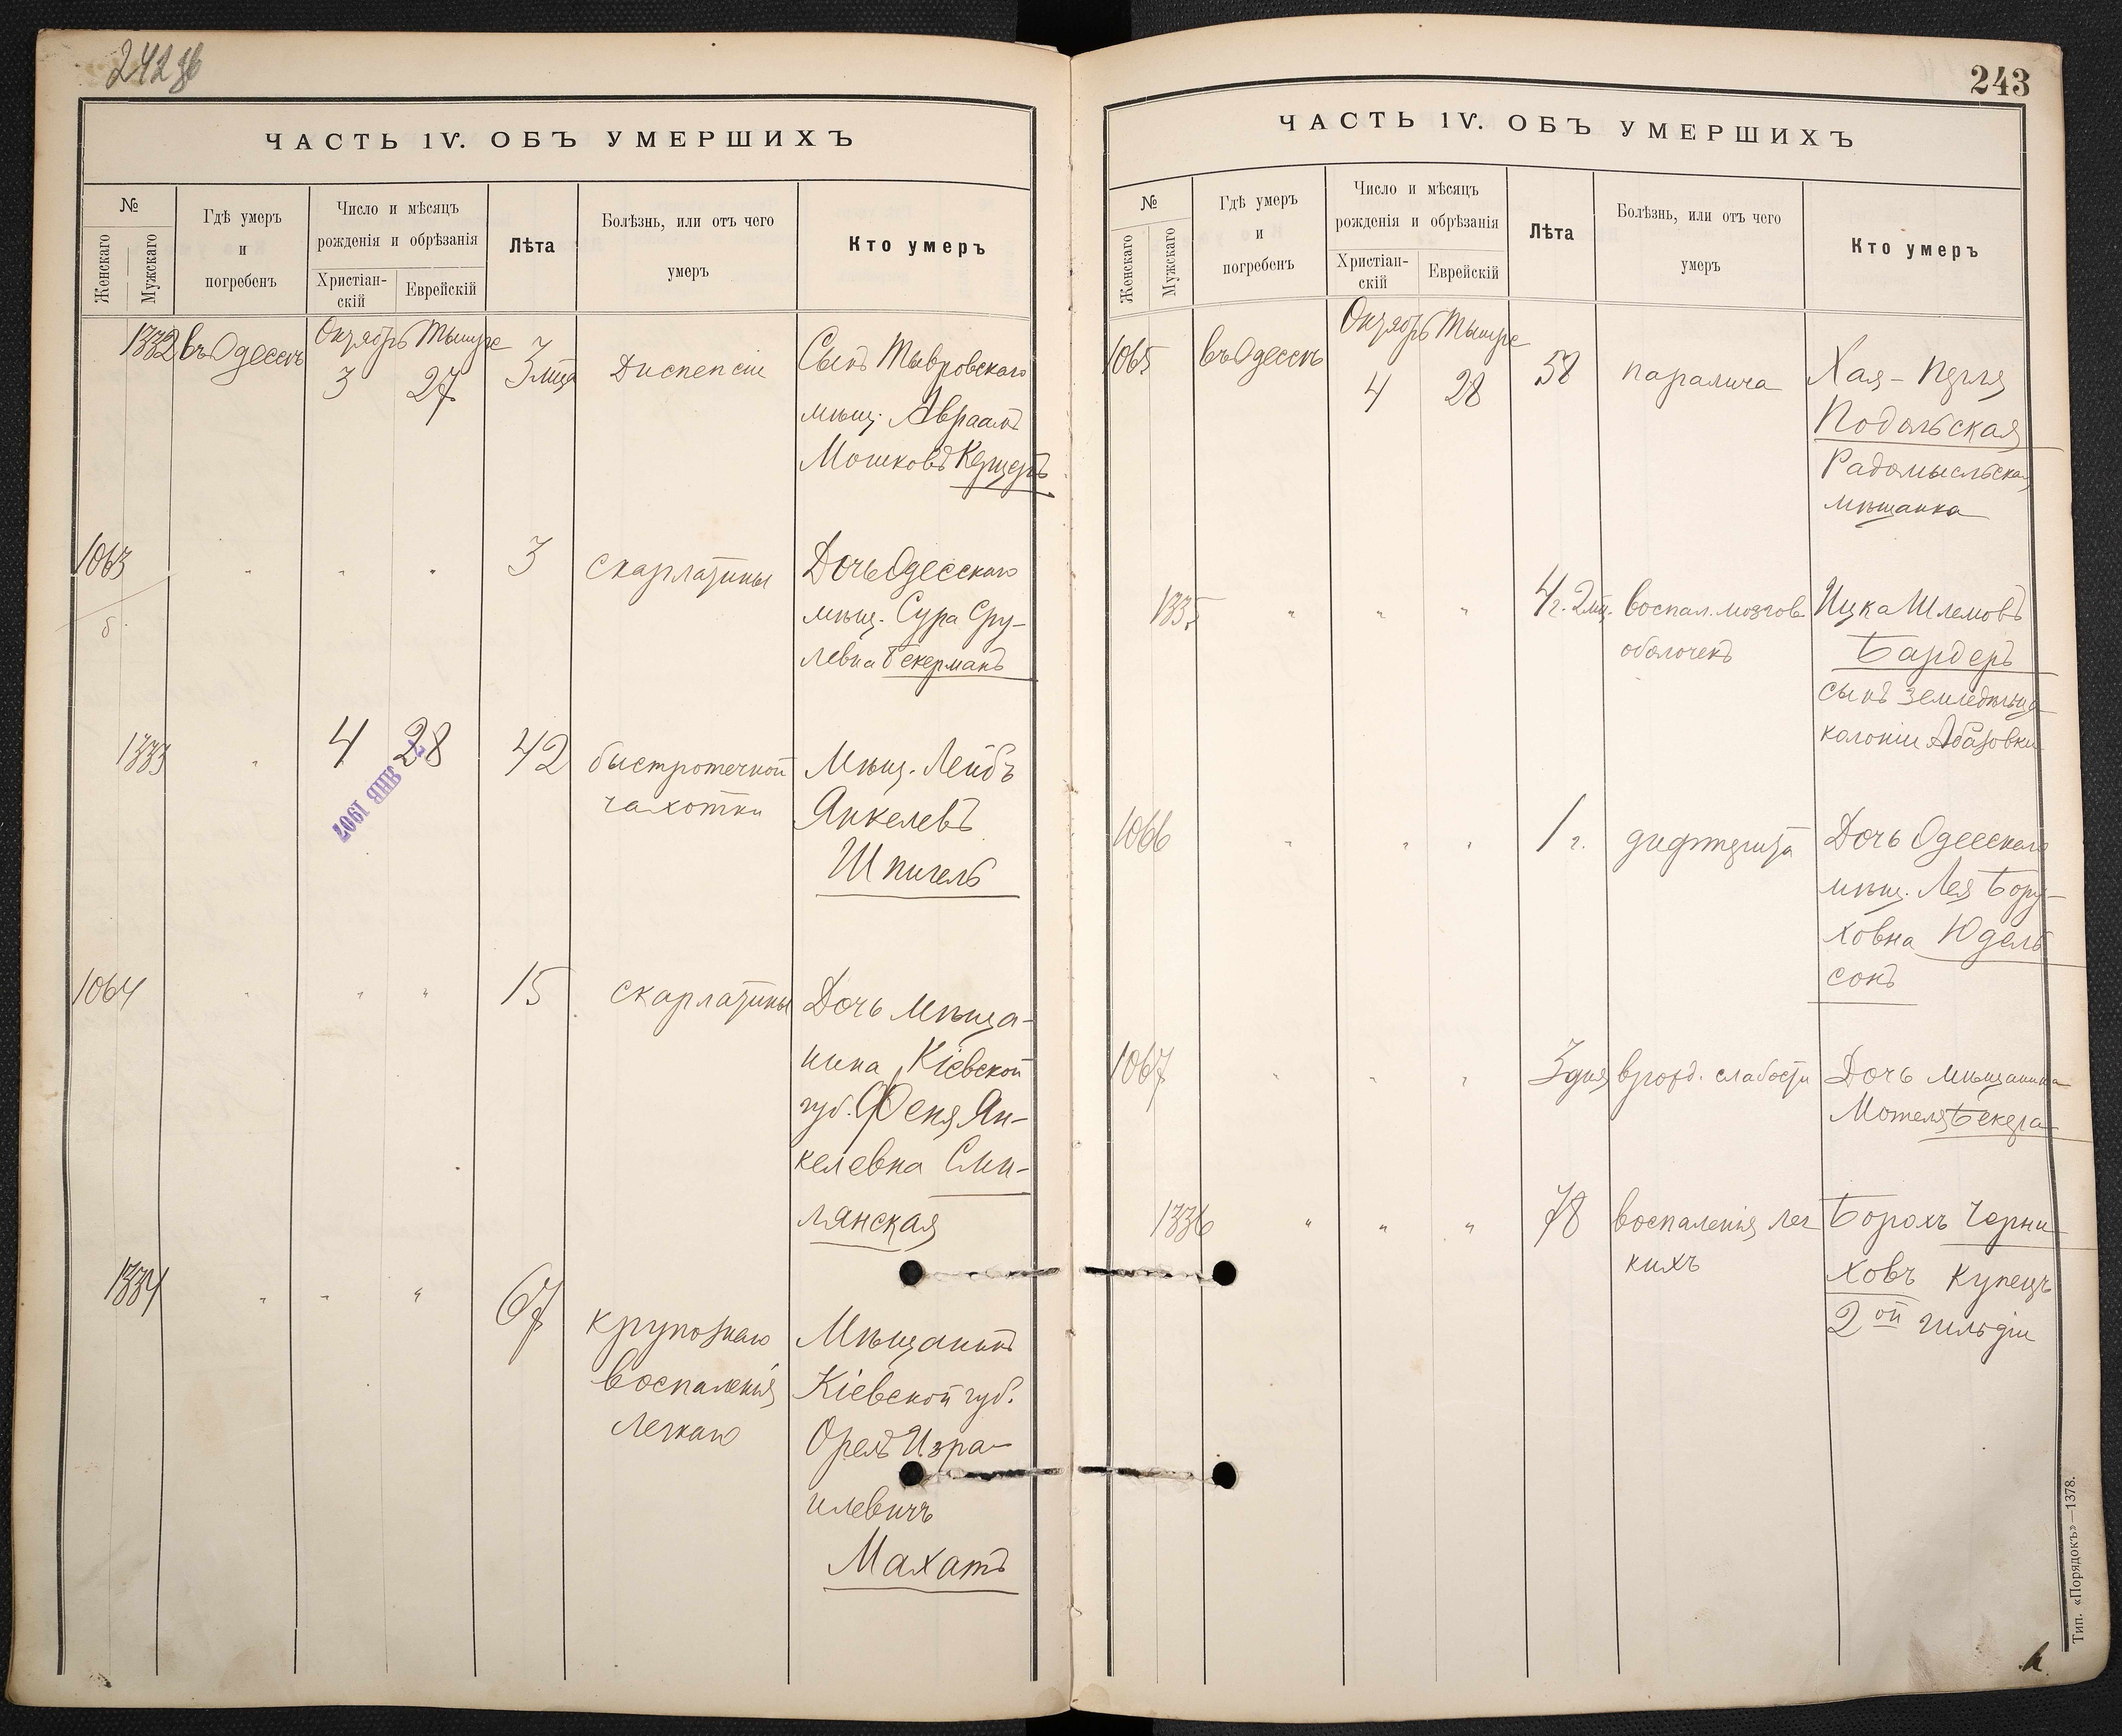 242
ЧАСТЬ IV. ОБЪ УМЕРШИХЪ
№
Женскаго
Мужскаго
Гдѣ умеръ
и
погребенъ
Число и мѣсяцъ
рожденія и обрѣзанія
Христіан-
скій
Еврейскій
Лѣта
Болѣзнь, или отъ чего
умеръ
Кто умеръ
1332 въ Одессѣ Октябрь Тишре
3 27 3 мца Диспепсіи Сынъ Тывровскаго
мѣщ. Авраамъ
Мошковъ Керцеръ
1063 " " " 3 скарлатины Дочь Одесскаго
б.
мѣщ. Сура Сру-
левна Бекерманъ
1333 " 4 28 42 быстротечной Мѣщ. Лейбъ
ЯНВ 1907
чахотки Янкелевъ
Шпигель
1064 " " " 15 скарлатины Дочь мѣща-
нина Кіевской
губ. Феня Ян-
келевна Сми-
лянская
1334 " " " 67 крупознаго Мѣщанинъ
воспаленія Кіевской губ.
легкаго Орелъ Изра-
илевичъ
Махатъ
243
ЧАСТЬ IV. ОБЪ УМЕРШИХЪ
№
Женскаго
Мужскаго
Гдѣ умеръ
и
погребенъ
Число и мѣсяцъ
рожденія и обрѣзанія
Христіан-
скій
Еврейскій
Лѣта
Болѣзнь, или отъ чего
умеръ
Кто умеръ
1065 въ Одессѣ Октябрь Тишре
4 28 58 паралича Хая-Перля
Подольская
Радомысльская
мѣщанка
1335 " " " 4 г. 2 мц. воспал. мозгов. Ицка Шлемовъ
оболочекъ Бардеръ
сынъ земледѣльца
колоніи Абазовки
1066 " " " 1 г. дифтерита Дочь Одесскаго
мѣщ. Лея Бору-
ховна Юдель
сонъ
1067 " " " 3 дня врожд. слабости Дочь мѣщанина
Мотеля Бекера
1336 " " " 78 воспаленія лег Борохъ Черни
кихъ ховъ купецъ
2ой гильдіи
Тип. «Порядокъ»—1378.